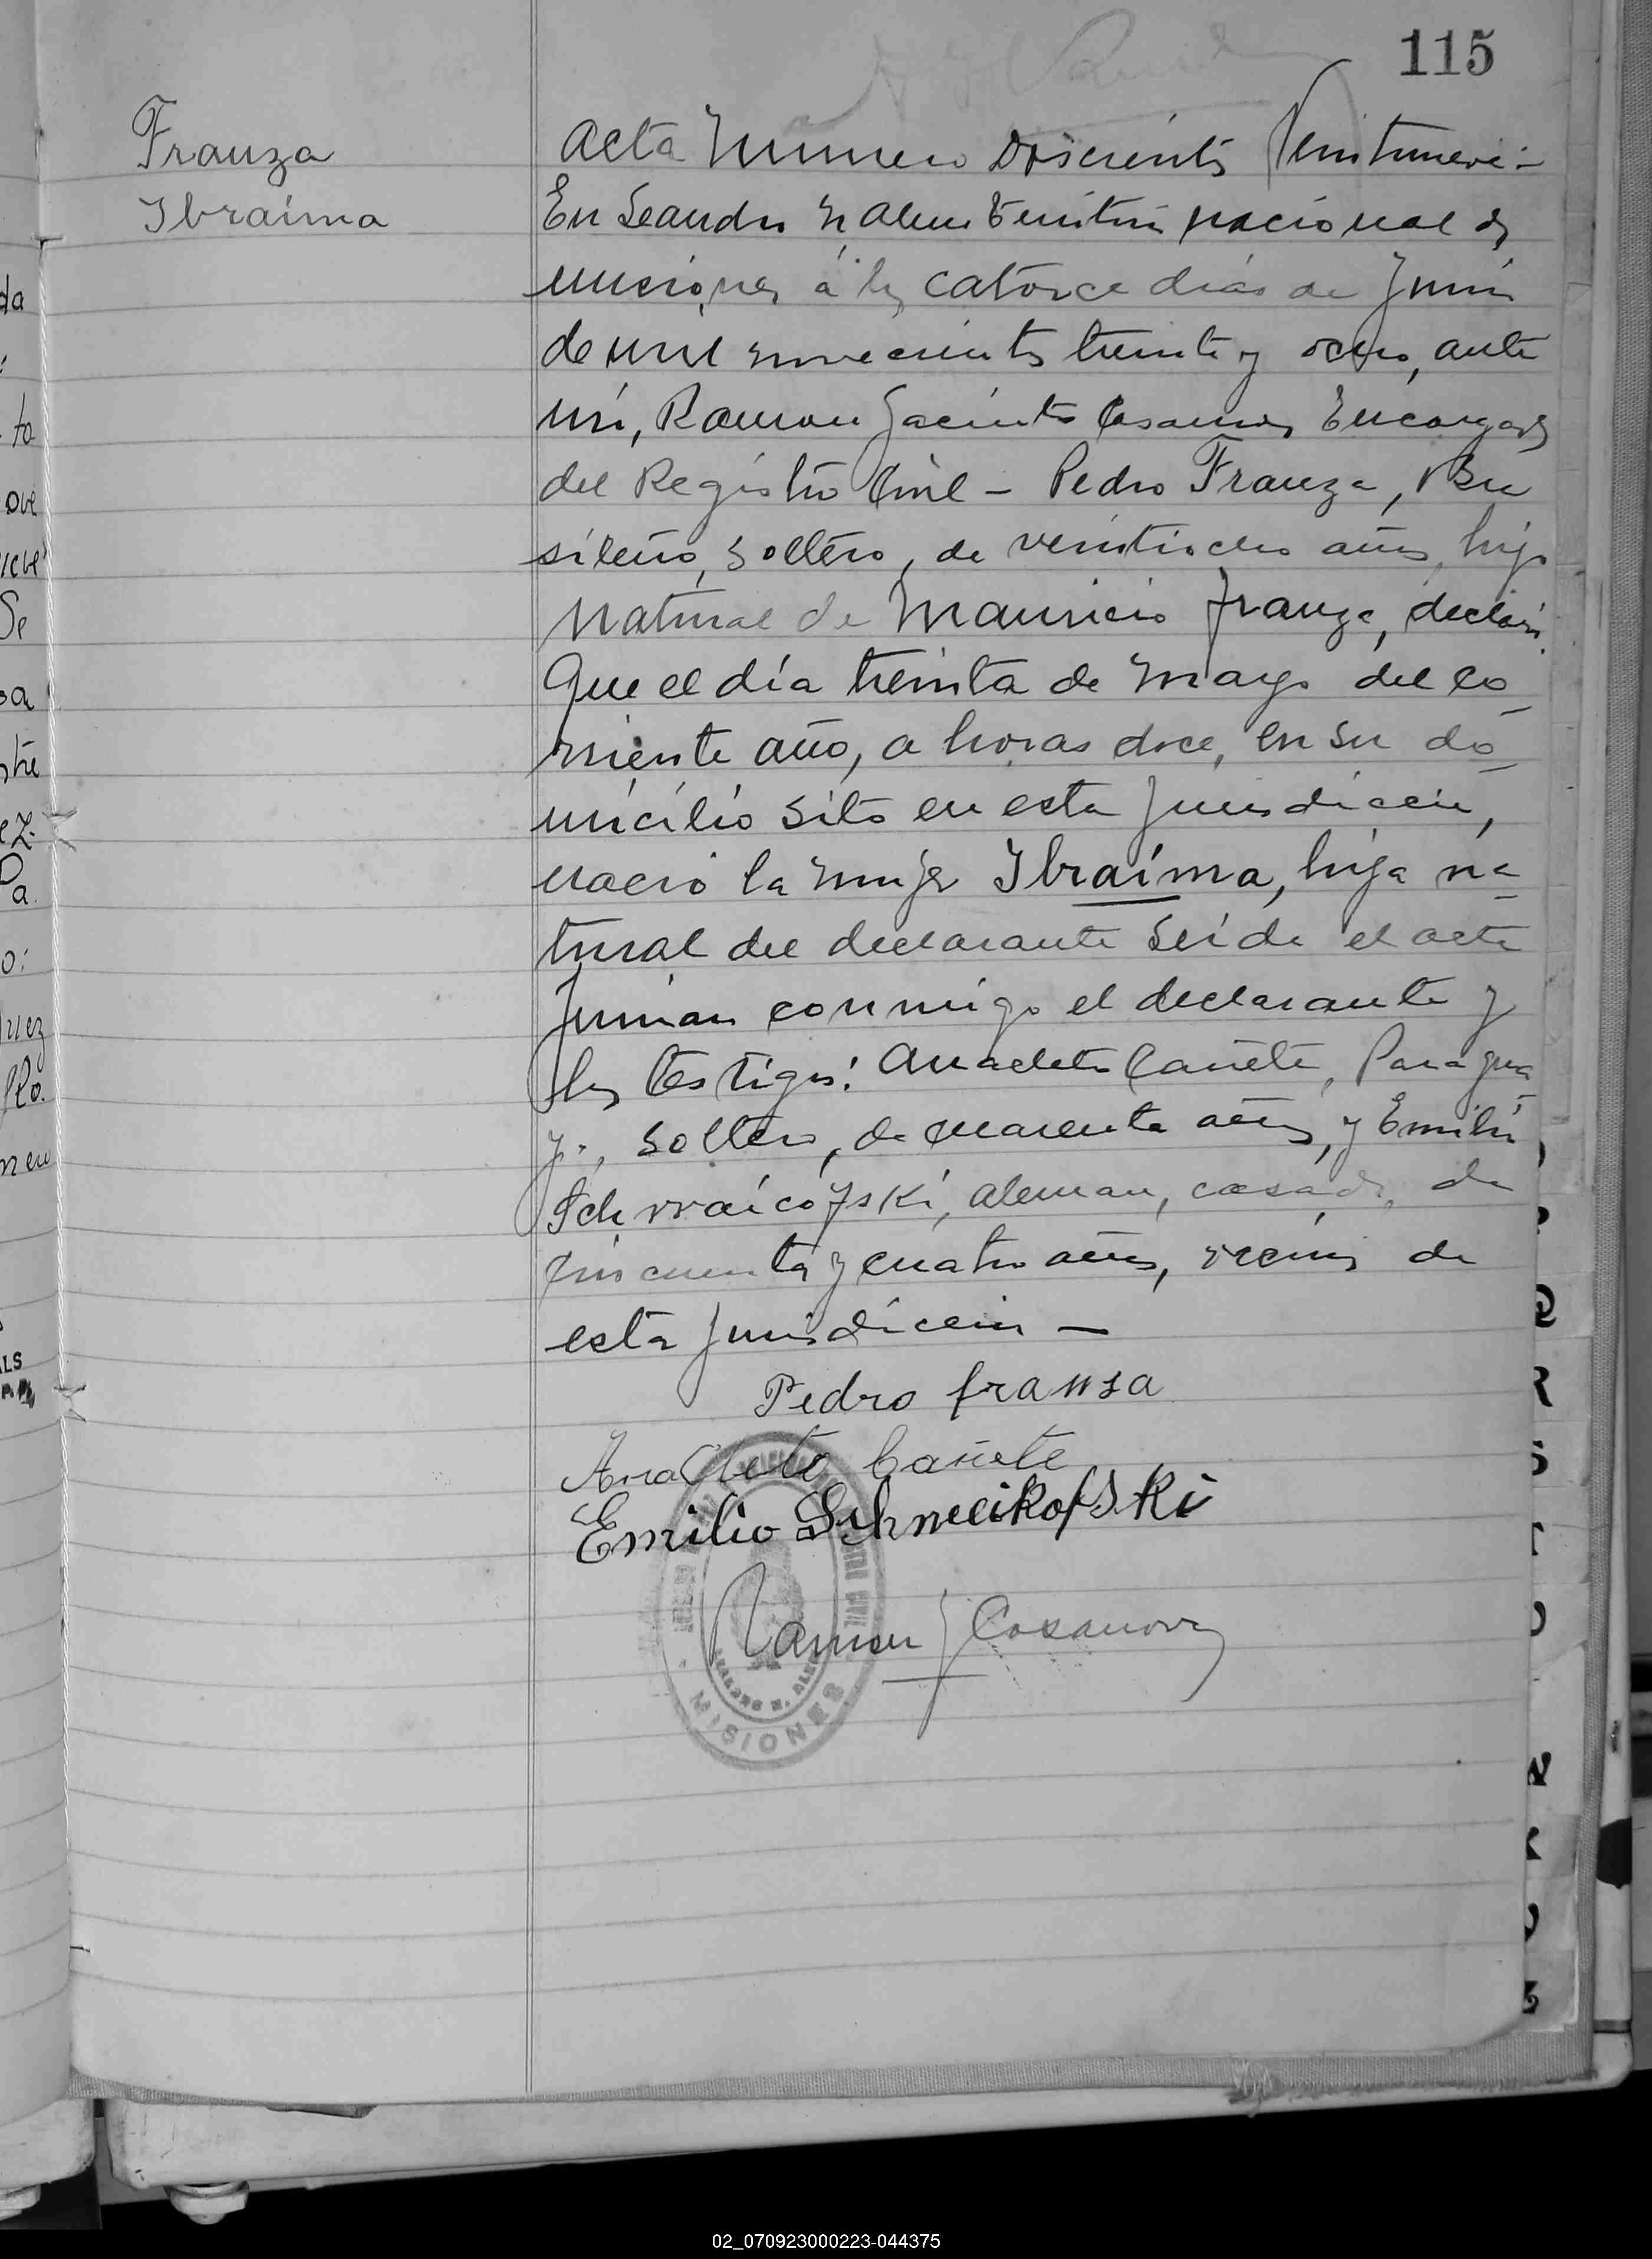 115
Franza
Ibraima
Acta Numero Doscientos Veintinueve-
En Leandro N Alem Territorio Nacional de
Misiones, á los catorce dias de Junio
de mil novecientos treinta y ocho, ante
mi, Ramon Jacinto Casanova Encargado
del Registro Civil - Pedro Franza, Bra
sileño, soltero, de veintiocho años, hijo
natural de Mauricio Franza, declaró
Que el día treinta de Mayo del co_
rriente año, a horas doce, en su do_
micilio sito en esta Jurisdiccion,
nació la mujer Ibraíma, hija na_
tural del declarante Leída el acta
firman conmigo el declarante y
los testigos: Anacleto Cañete, Paragua
yo, soltero, de cuarenta años, y Emilio
Schwaicófski, aleman, casado, de
cincuenta y cuatro años, vecinos de
esta Jurisdiccion -
Pedro fransa
Anacleto Cañete
Emilio Schweikofski
Ramon J Casanova
REGISTRO CIVIL
LEANDRO N. ALEM
MISIONES
02_070923000223-044375